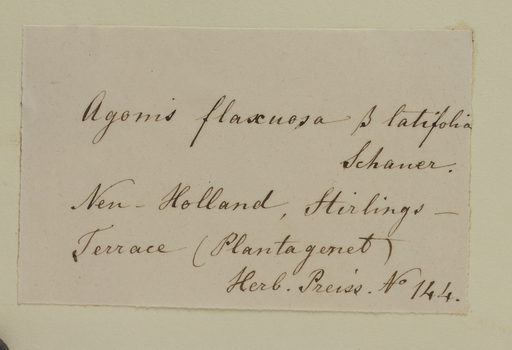 Agonis flaxuosa β latifolia
Schauer.
Neu-Holland, Stirlings-
Terrace (Plantagenet)
Herb. Preiss. No 144.